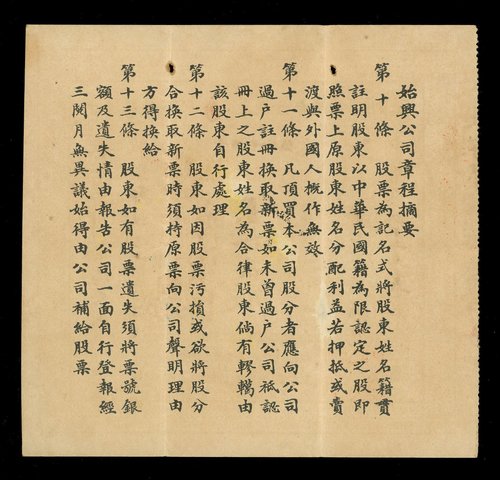 始興公司章程摘要
第十條　股票為記名式將股東姓名籍貫
註明股東以中華民國籍為限認定之股即
照票上原股東姓名分配利益若押抵或賣
渡與外國人概作無效
第十一條　凡頂買本公司股分者應向公司
過戶註冊換取新票如未曾過戶公司祗認
冊上之股東姓名為合律股東倘有轇轕由
該股東自行處理
第十二條　股東如因股票污損或欲將股分
合換取新票時須持原票向公司聲明理由
方得換給
第十三條　股東如有股票遺失須將票號銀
額及遺失情由報告公司一面自行登報經
三閱月無異議始得由公司補給股票